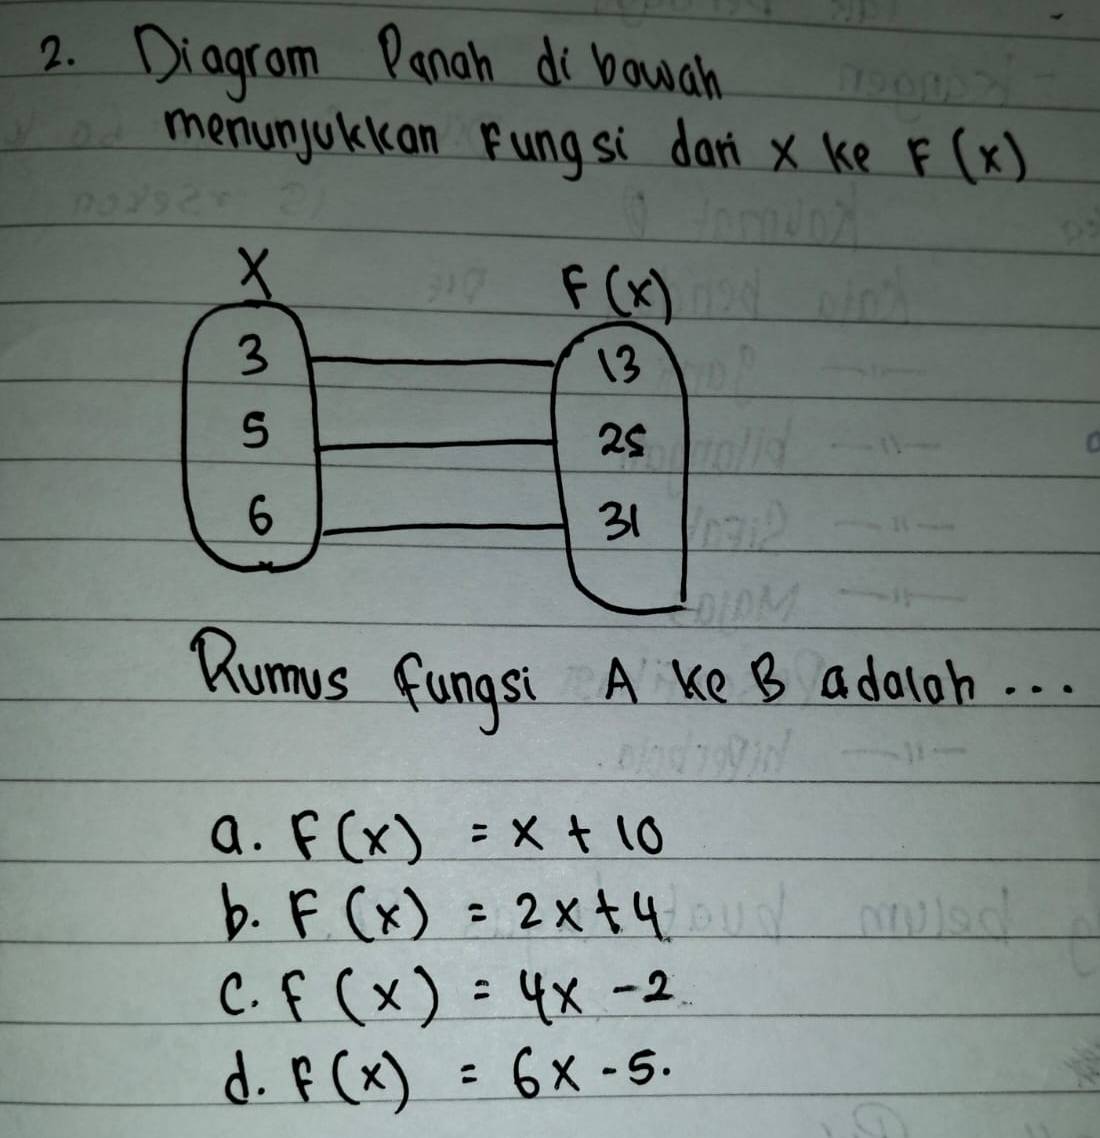 2. Diagram Panah di bawah
menunjukkan Fungsi dari x ke F(x)
X
F(x)
3 13
5 25
6 31
Rumus fungsi A ke B adalah ...
a. F(x) = x + 10
b. F(x) = 2x + 4
c. f(x) = 4x - 2
d. F(x) = 6x - 5.